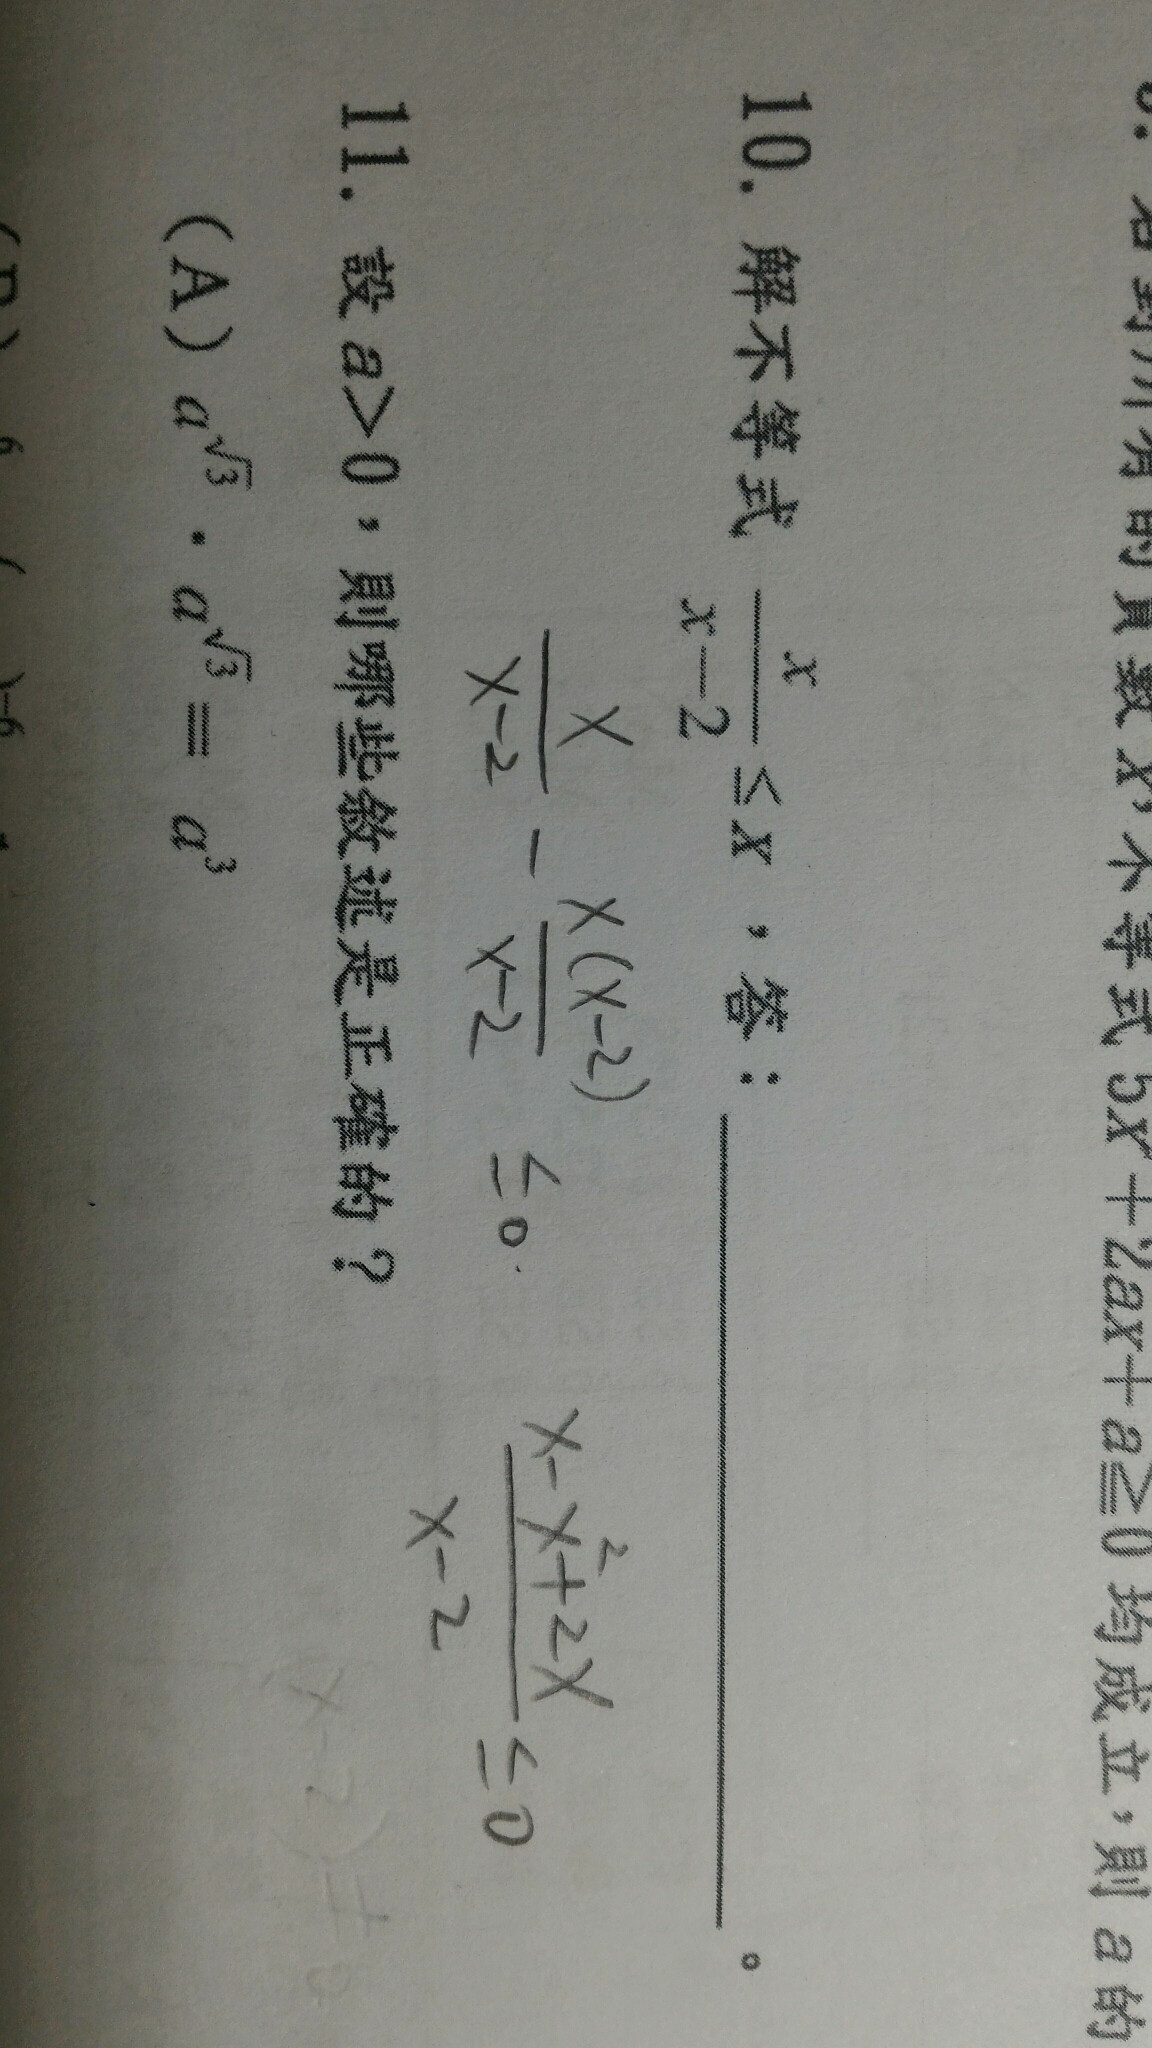 式 5x²+2ax+a≧0 均成立，則 a 的
10. 解不等式 x/(x-2) ≤ x ，答：＿＿＿＿＿＿。
x/(x-2) - x(x-2)/(x-2) ≤ 0.
(x-x²+2x)/(x-2) ≤ 0
11. 設 a>0，則哪些敘述是正確的？
(A) a^√3 · a^√3 = a³